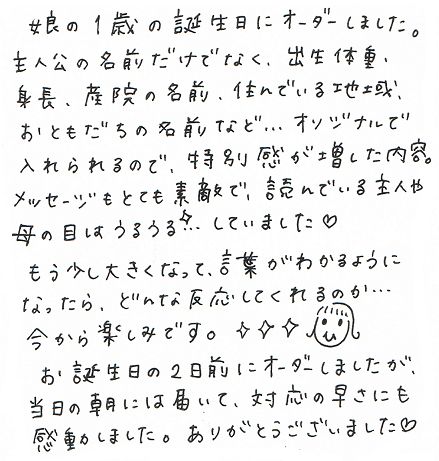 娘の1歳の誕生日にオーダーしました。
主人公の名前だけでなく、出生体重、
身長、産院の名前、住んでいる地域、
おともだちの名前など…オリジナルで
入れられるので、特別感が増した内容。
メッセージもとても素敵で、読んでいる主人や
母の目はうるうる…していました♡
もう少し大きくなって、言葉がわかるように
なったら、どんな反応してくれるのか…
今から楽しみです。✧✧✧
お誕生日の2日前にオーダーしましたが、
当日の朝には届いて、対応の早さにも
感動しました。ありがとうございました♡